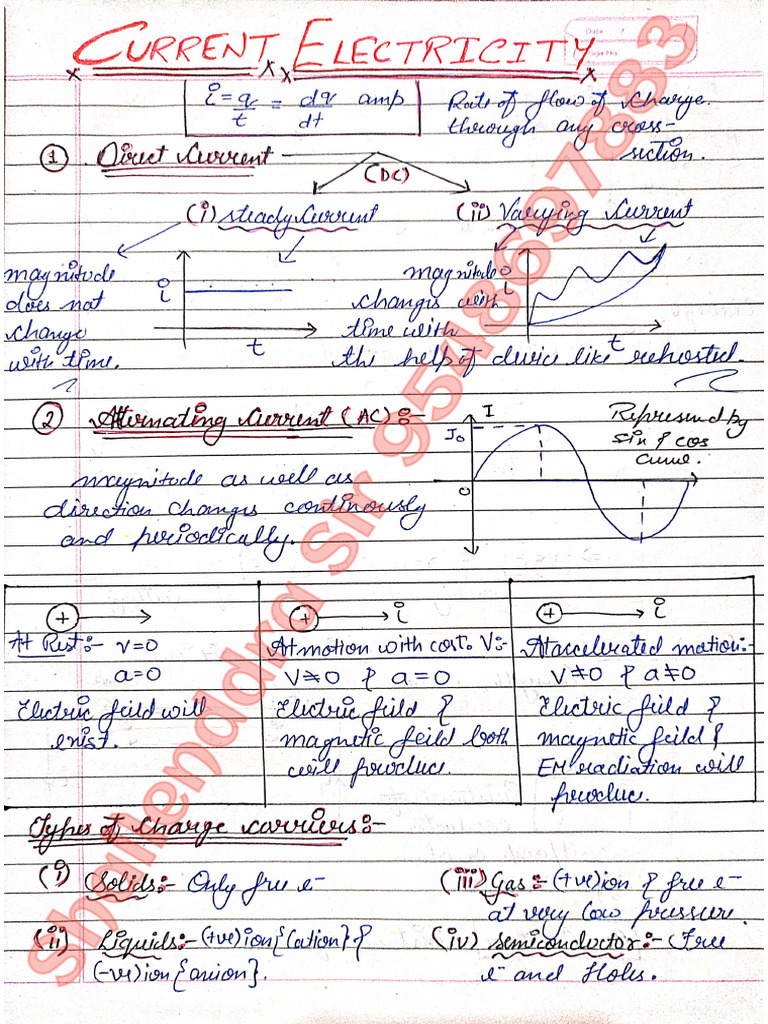 CURRENT ELECTRICITY
Date
Page No.
i = q/t = dq/dt amp
Rate of flow of charge
through any cross-
section.
① Direct Current
(DC)
(i) steady current
(ii) Varying Current
magnitude
does not
change
with time.
i
t
magnitude
changes with
time with
the help of device like rehosted.
i
t
② Alternating Current (AC):-
magnitude as well as
direction changes continously
and periodically.
I
I₀
O
Represened by
sin & cos
curve.
+
At Rest:- v=0
a=0
Electric feild will
exist.
+ i
At motion with cost. V:-
V≠0 & a=0
Electric field &
magnetic feild both
will produce.
+ i
At accelerated motion:-
V≠0 & a≠0
Electric field &
magnetic feild &
EM radiation will
produce.
Types of charge carriers:-
(i) Solids:- Only free e-
(ii) Liquids:- (+ve)ion{cation} &
(-ve)ion{anion}.
(iii) Gas:- (+ve)ion & free e-
at very low pressure.
(iv) semiconductor:- Free
e- and Holes.
Shailenddra Sir 9548697883